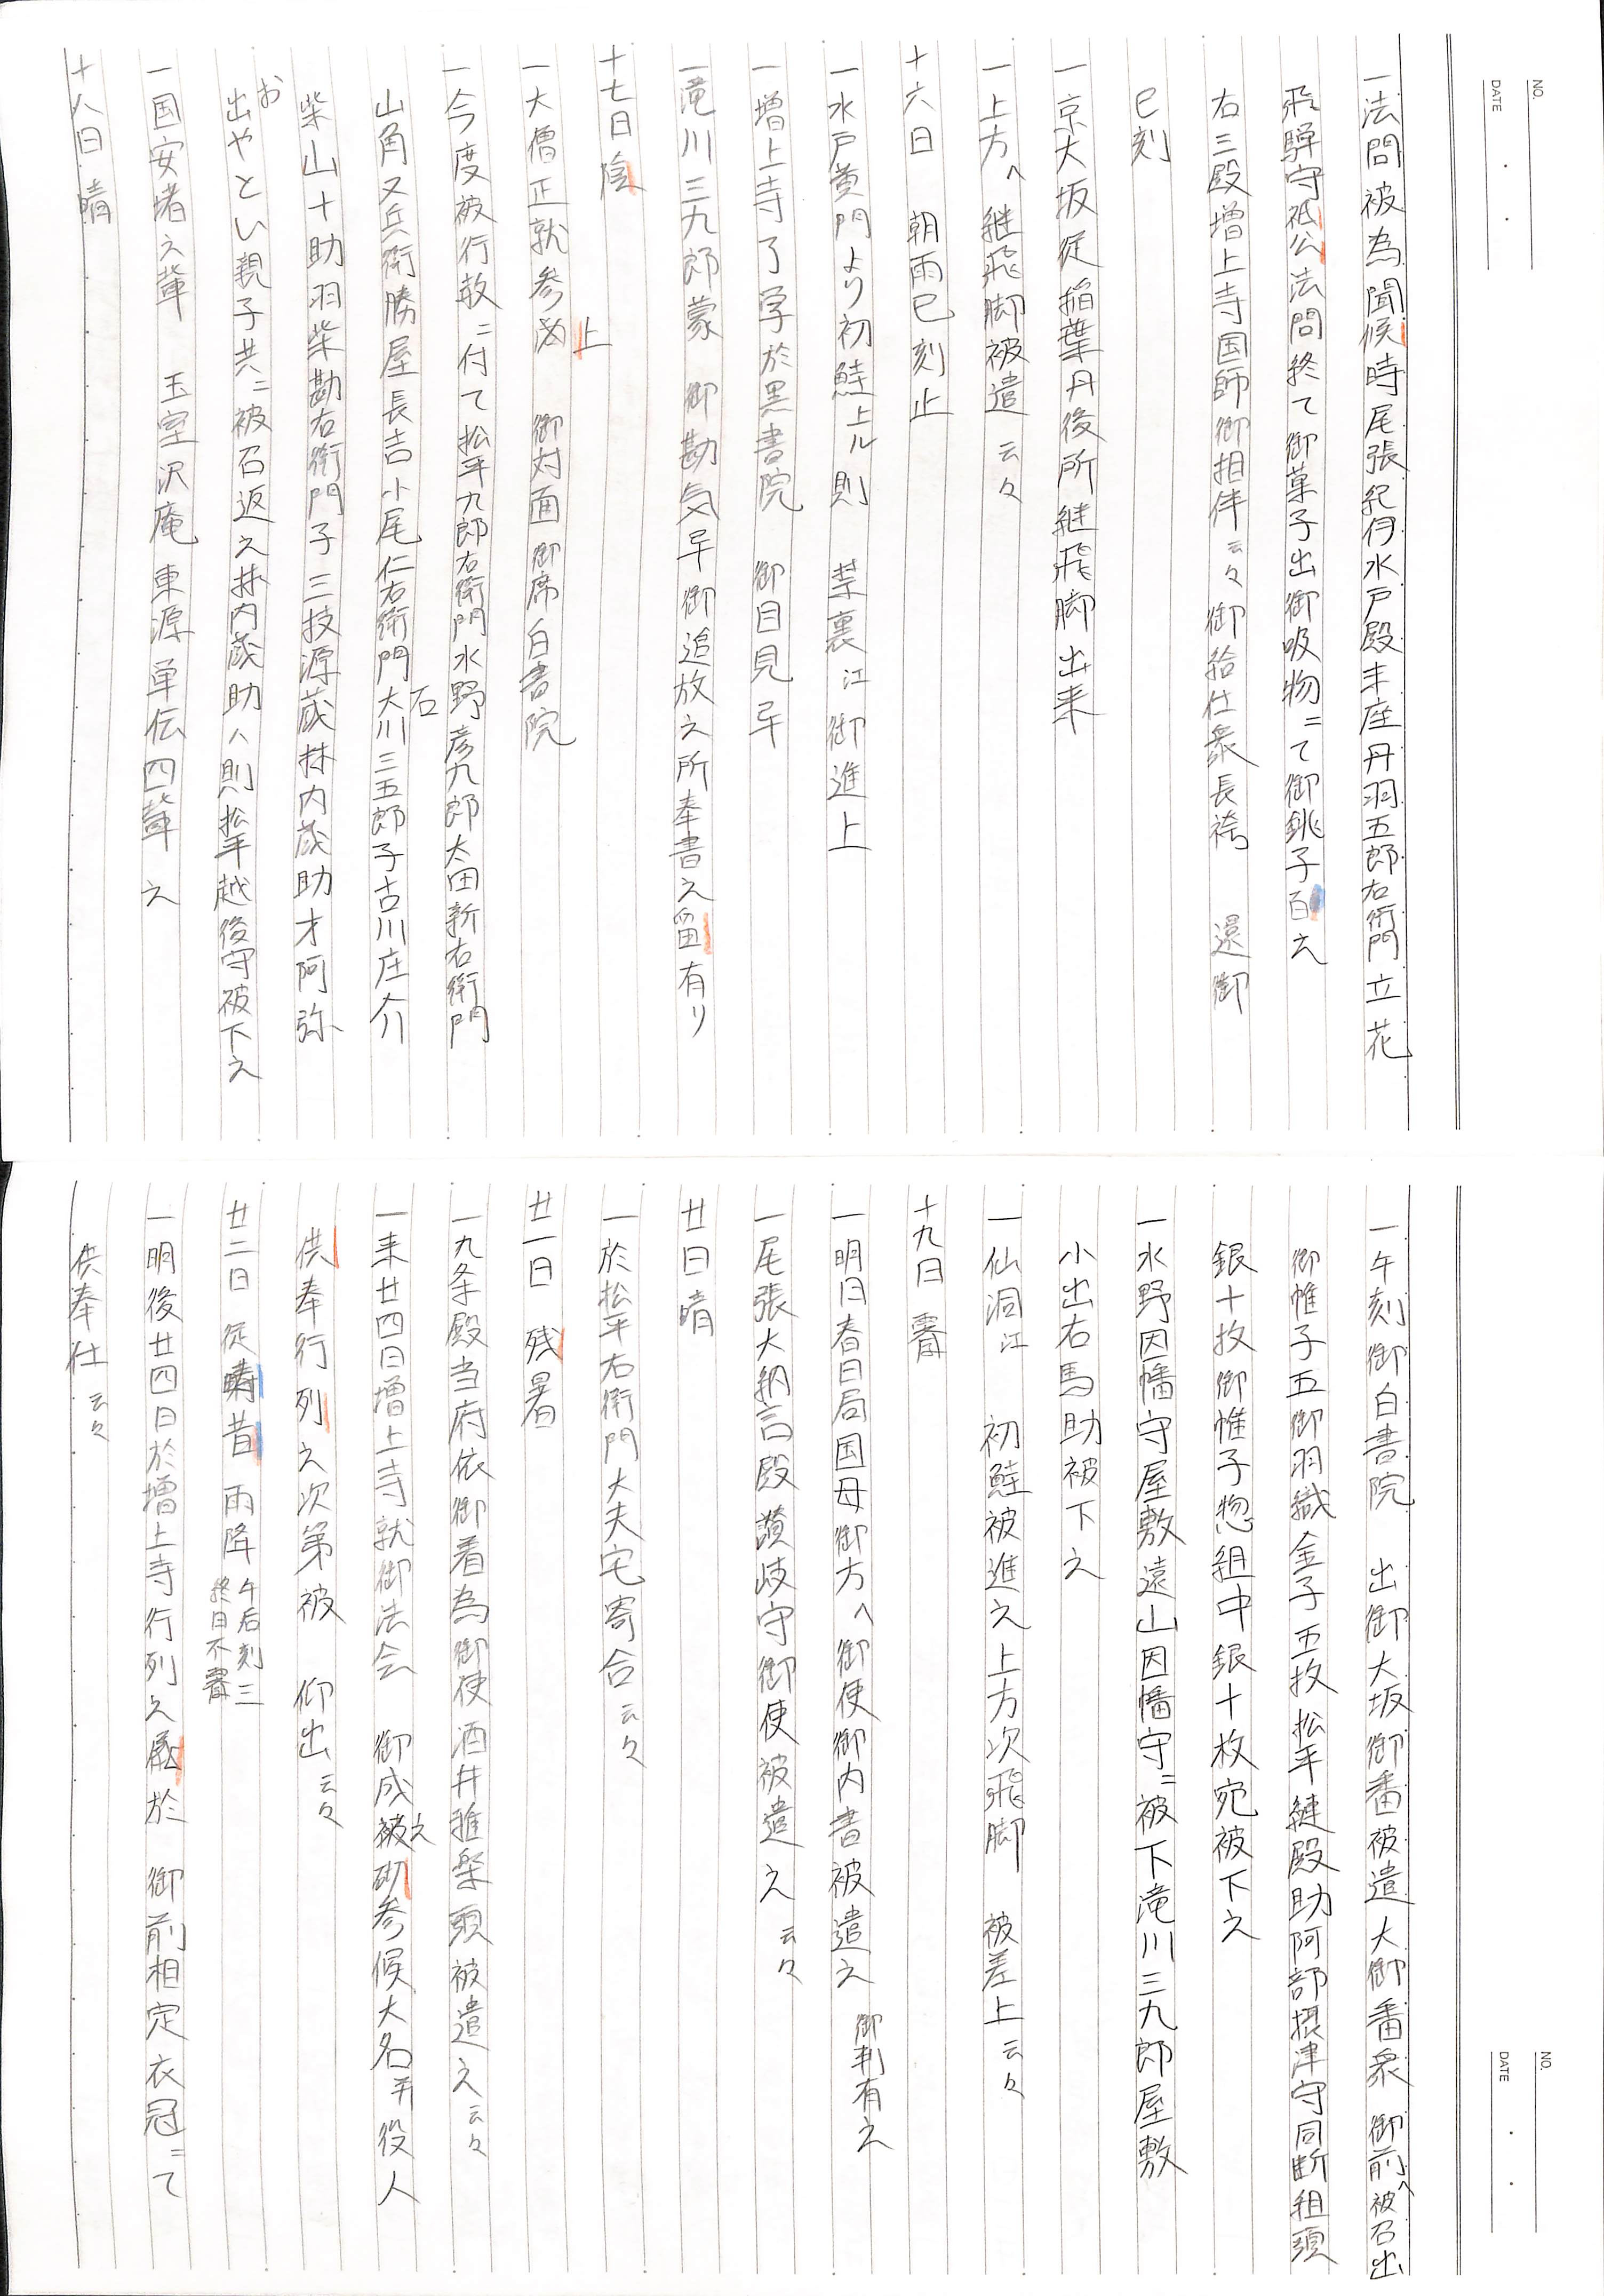 NO.
DATE
一法問被為聞候時尾張紀伊水戸殿半座丹羽五郎右衛門立花
飛騨守祗公法問終て御菓子出御吸物ニて御銚子百之
右三殿増上寺国師御相伴云々御給仕衆長袴 還御
巳刻
一京大坂従稲葉丹後所継飛脚出来
一上方へ継飛脚被遣云々
十六日 朝雨巳刻止
一水戸黄門より初鮭上ル則 禁裏江御進上
一増上寺了学於黒書院 御目見畢
一滝川三九郎蒙 御勘気畢御追放之所奉書之留有リ
十七日 陰
一大僧正就参 上 御対面御席白書院
一今度被行赦ニ付て松平九郎右衛門水野彦九郎太田新右衛門
山角又兵衛勝屋長吉小尾仁右衛門大川三五郎子古川庄介
石
柴山十助羽柴勘右衛門子三技源蔵林内蔵助才阿弥
お
出やとい親子共ニ被召返之林内蔵助ハ則松平越後守被下之
一国安堵之輩 玉室沢庵東源単伝四輩之
十八日 晴
NO.
DATE
一午刻御白書院 出御大坂御番被遣大御番衆 御前へ被召出
御帷子五御羽織金子五枚松平縫殿助阿部摂津守同断組頭
銀十枚御帷子惣組中銀十枚宛被下之
一水野因幡守屋敷遠山因幡守ニ被下滝川三九郎屋敷
小出右馬助被下之
一仙洞江 初鮭被進之上方次飛脚 被差上云々
十九日 霽
一明日春日局国母御方へ御使御内書被遣之 御判有之
一尾張大納言殿讃岐守御使被遣之云々
廿日晴
一於松平右衛門大夫宅寄合云々
廿一日 残暑
一九条殿当府依御着為御使酒井雅楽頭被遣之云々
一来廿四日増上寺就御法会 御成被之砌参候大名并役人
供奉行列之次第被 仰出云々
廿二日 従疇昔 雨降 午后刻三
終日不霽
一明後廿四日於増上寺行列之於 御前相定衣冠ニて
供奉仕云々